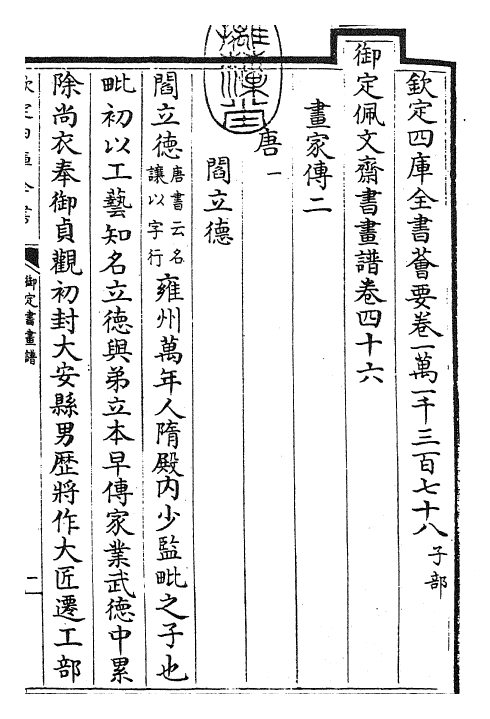 欽定四庫全書薈要卷一萬一千三百七十八子部
御定佩文齋書畫譜卷四十六
畫家傳二
唐一
閻立德
閻立德唐書云名讓以字行雍州萬年人隋殿内少監毗之子也
毗初以工藝知名立德與弟立本早傳家業武德中累
除尚衣奉御貞觀初封大安縣男歴將作大匠遷工部
欽定四庫全書
御定書畫譜